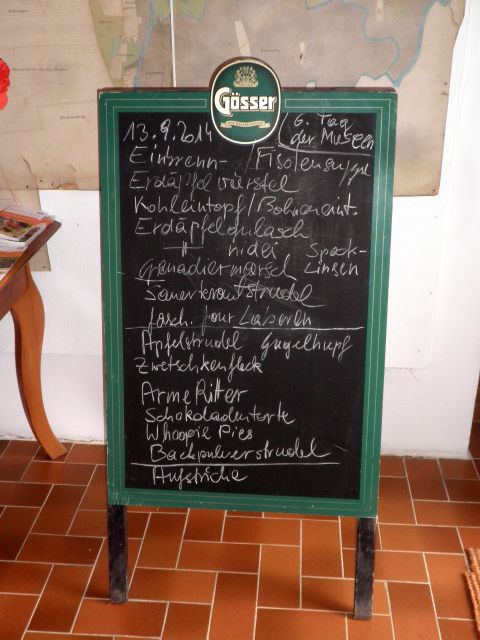 Gösser
13.9.2014
6. Tag
der Museen
Einbrenn- / Fisolensuppe
Erdäpfelwürstel
Kohleintopf / Bohneneint.
Erdäpfelgulasch
-"- nidei Speck-
Grenadiermarsch Linsen
Sauerkrautstrudel
fasch. Laiberln
Apfelstrudel Gugelhupf
Zwetschkenfleck
Arme Ritter
Schokoladentorte
Whoopie Pies
Backpulverstrudel
Aufstriche